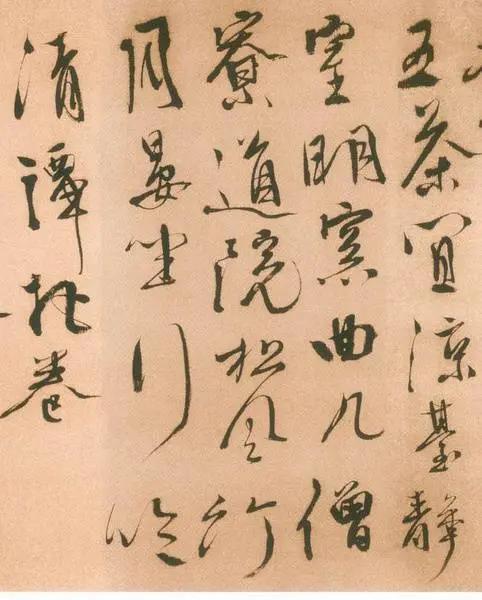 五茶宜涼臺靜
室明窓曲几僧
寮道院松風竹
月晏坐行吟
清譚把卷